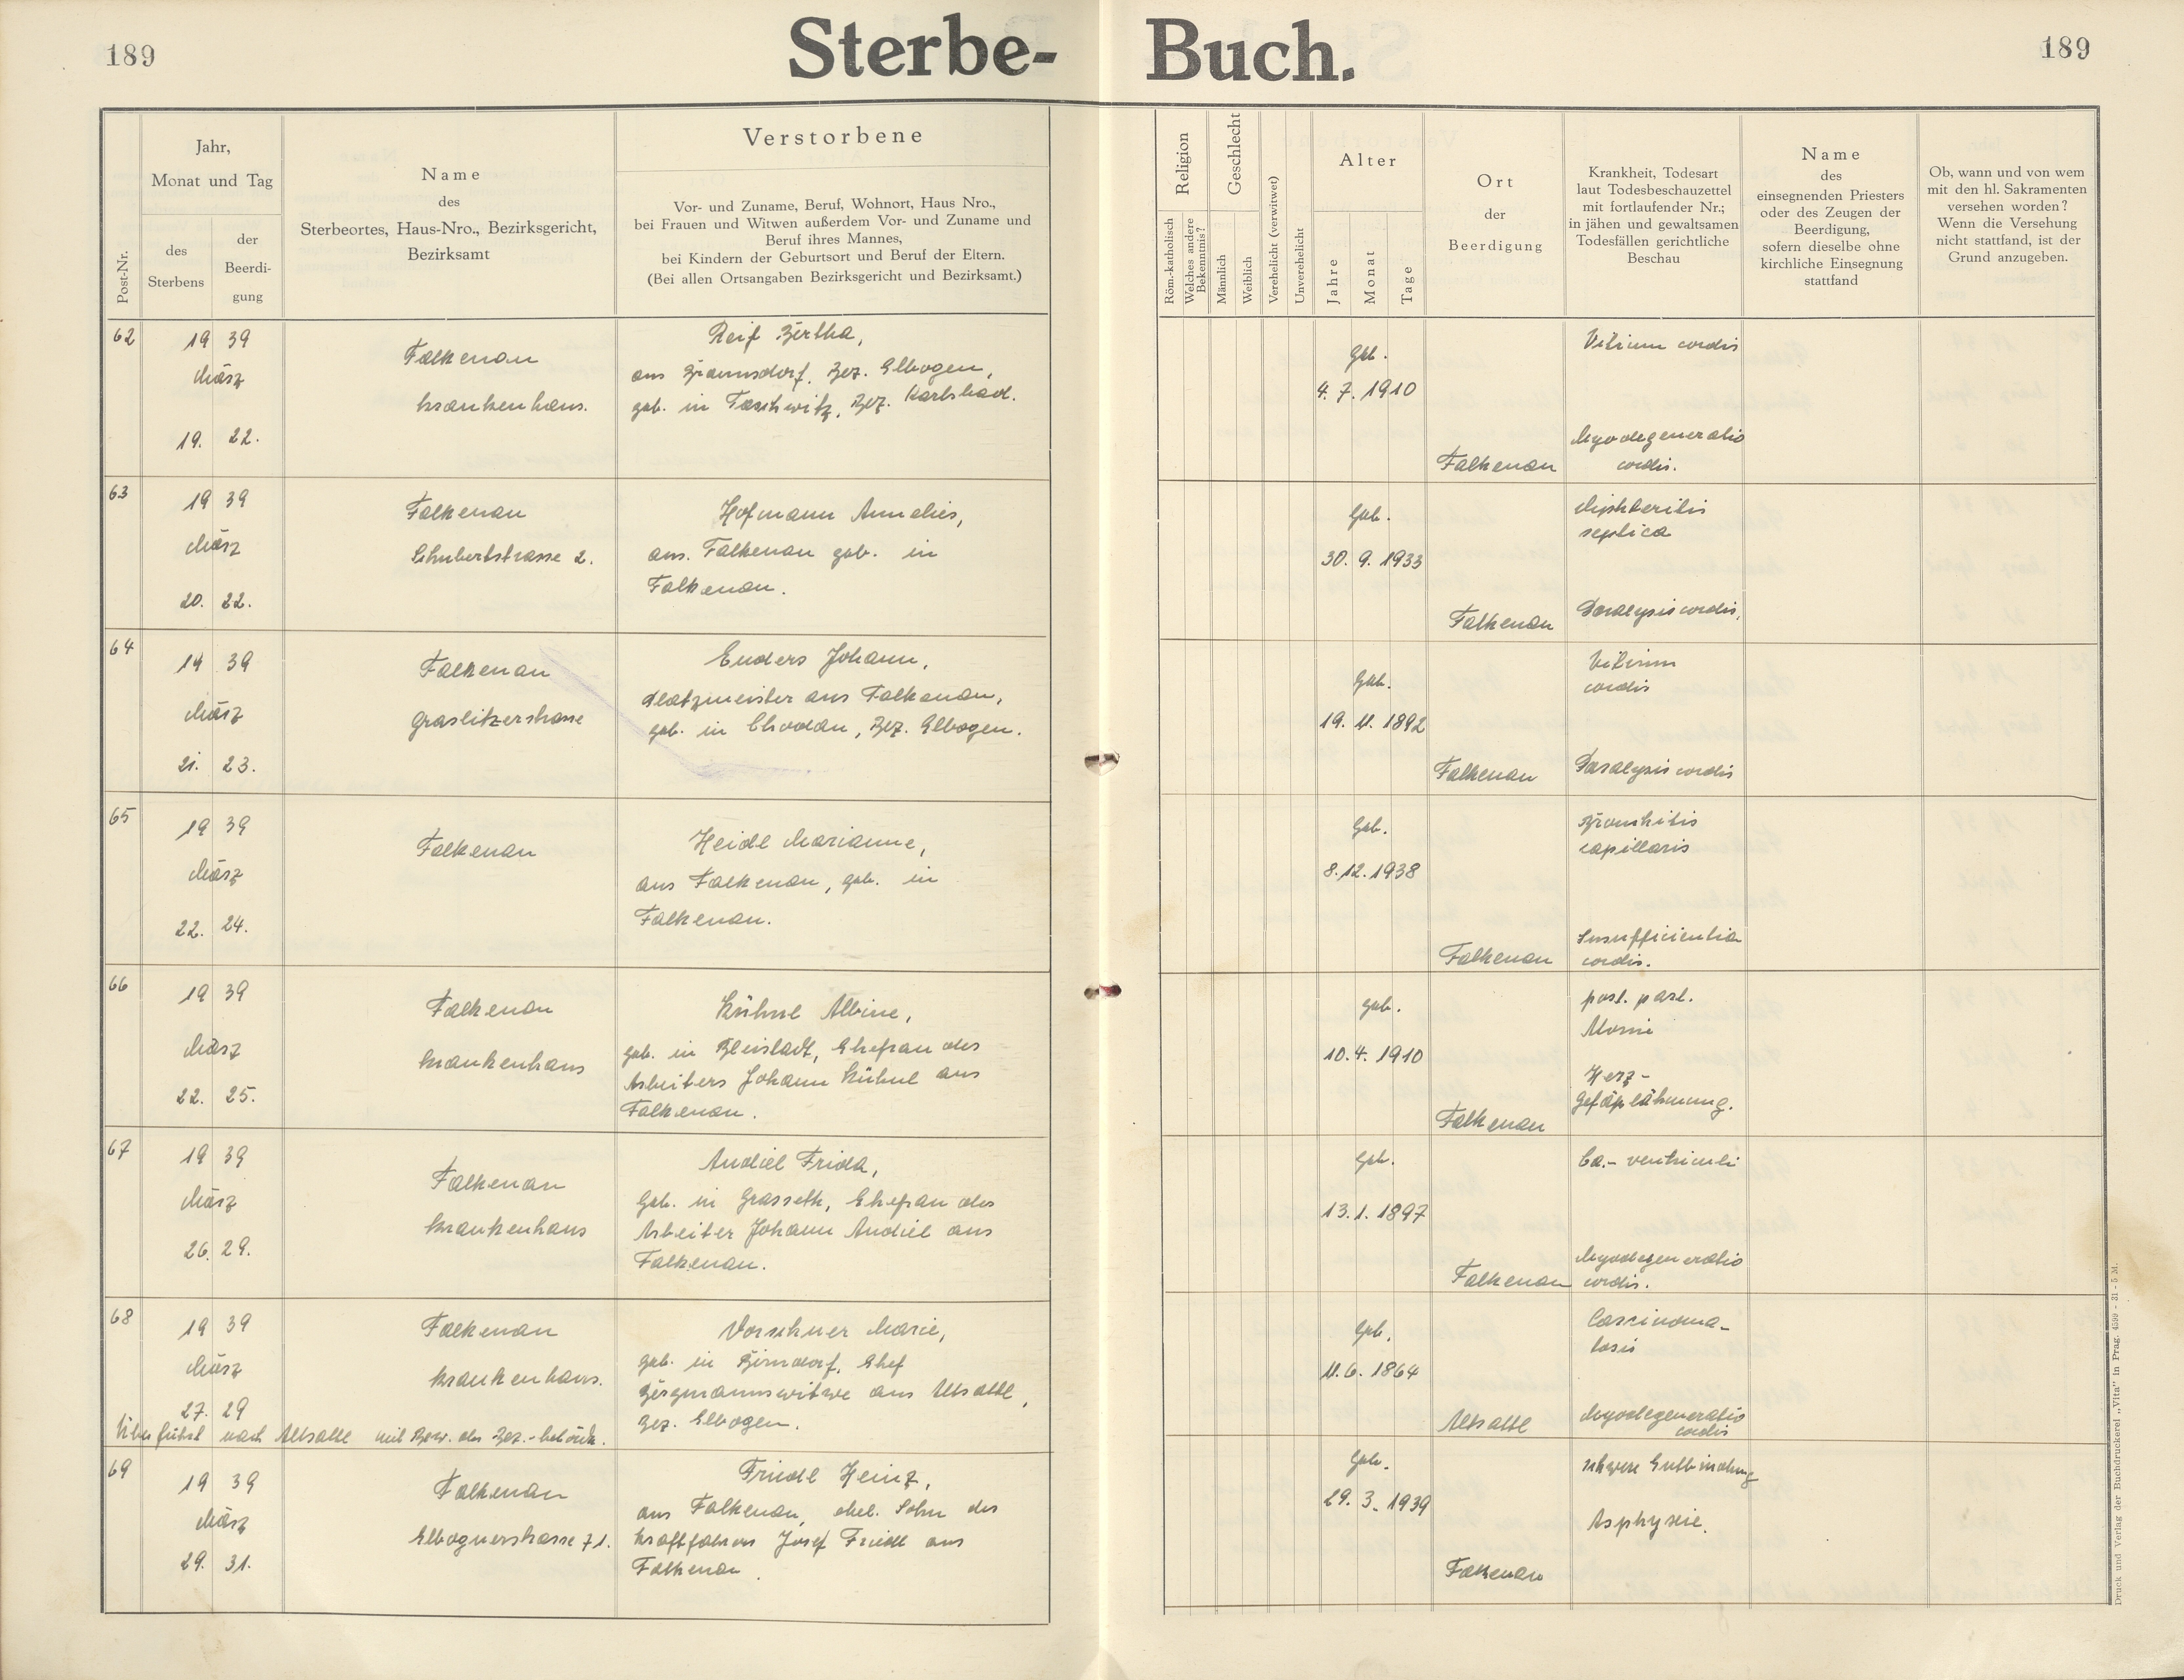 189
Sterbe-Buch.
189
Post-Nr.
Jahr,
Monat und Tag
des
Sterbens
der
Beerdi-
gung
Name
des
Sterbeortes, Haus-Nro., Bezirksgericht,
Bezirksamt
Verstorbene
Vor- und Zuname, Beruf, Wohnort, Haus Nro.,
bei Frauen und Witwen außerdem Vor- und Zuname und
Beruf ihres Mannes,
bei Kindern der Geburtsort und Beruf der Eltern.
(Bei allen Ortsangaben Bezirksgericht und Bezirksamt.)
Religion
Röm.-katholisch
Welches andere
Bekenntnis?
Geschlecht
Männlich
Weiblich
Verehelicht (verwitwet)
Unverehelicht
Alter
Jahre
Monat
Tage
Ort
der
Beerdigung
Krankheit, Todesart
laut Todesbeschauzettel
mit fortlaufender Nr.;
in jähen und gewaltsamen
Todesfällen gerichtliche
Beschau
Name
des
einsegnenden Priesters
oder des Zeugen der
Beerdigung,
sofern dieselbe ohne
kirchliche Einsegnung
stattfand
Ob, wann und von wem
mit den hl. Sakramenten
versehen worden?
Wenn die Versehung
nicht stattfand, ist der
Grund anzugeben.
62
19 39
März
19. 22.
Falkenau
Krankenhaus.
Reif Bertha,
aus Braunsdorf, Bez. Elbogen,
geb. in Taschwitz, Bez. Karlsbad.
Geb.
4. 7. 1910
Falkenau
Vitium cordis
Myodegeneratio
cordis.
63
19 39
März
20. 22.
Falkenau
Schubertstrasse 2.
Hofmann Annelies,
aus. Falkenau geb. in
Falkenau.
Geb.
30. 9. 1933
Falkenau
Diphteritis
septica
Paralysis cordis,
64
19 39
März
21. 23.
Falkenau
Graslitzerstrasse
Enders Johann,
Platzmeister aus Falkenau,
geb. in Chodau, Bez. Elbogen.
Geb.
19. 11. 1892
Falkenau
Vitium
cordis
Paralysis cordis
65
19 39
März
22. 24.
Falkenau
Heidl Marianne,
aus Falkenau, geb. in
Falkenau.
Geb.
8. 12. 1938
Falkenau
Bronchitis
capillaris
Insufficientia
cordis.
66
19 39
März
22. 25.
Falkenau
Krankenhaus
Kühnl Albine,
geb. in Bleistadt, Ehefrau des
Arbeiters Johann Kühnl aus
Falkenau.
geb.
10. 4. 1910
Falkenau
post. part.
Atonie
Herz-
Gefäßlähmung.
67
19 39
März
26. 29.
Falkenau
Krankenhaus
Andiel Frida,
Geb. in Grasseth, Ehefrau des
Arbeiter Johann Andiel aus
Falkenau.
Geb.
13. 1. 1897
Falkenau
Ca.- ventriculi
Myodegeneratio
cordis.
68
19 39
März
27. 29
Falkenau
Krankenhaus.
Vorschner Marie,
geb. in Birndorf, Ehef
Bergmannswitwe aus Altsattl,
Bez. Elbogen.
Überführt nach Altsattl mit Bew. der Bez.-behörde.
Geb.
11. 6. 1864
Altsattl
Carcinoma-
tosis
Myodegeneratio
cordis
69
19 39
März
29. 31.
Falkenau
Elbognerstrasse 71.
Friedl Heinz,
aus Falkenau, ehel. Sohn des
Kraftfahrers Josef Friedl aus
Falkenau.
Geb.
29. 3. 1939
Falkenau
schwere Entbindung
Asphyxie.
Druck und Verlag der Buchdruckerei „Vita" in Prag. 4599 - 31 - 5 M.